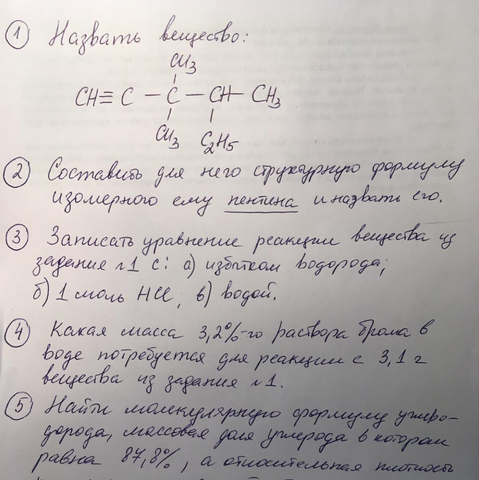 1 Назвать вещество:
CH3
CH≡C — C — CH — CH3
CH3 C2H5
2 Составить для него структурную формулу
изомерного ему пентина и назвать его.
3 Записать уравнение реакции вещества из
задания №1 с: а) избытком водорода;
б) 1 моль HCl, в) водой.
4 Какая масса 3,2%-го раствора брома в
воде потребуется для реакции с 3,1 г
вещества из задания №1.
5 Найти молекулярную формулу углево-
дорода, массовая доля углерода в котором
равна 87,8%, а относительная плотность